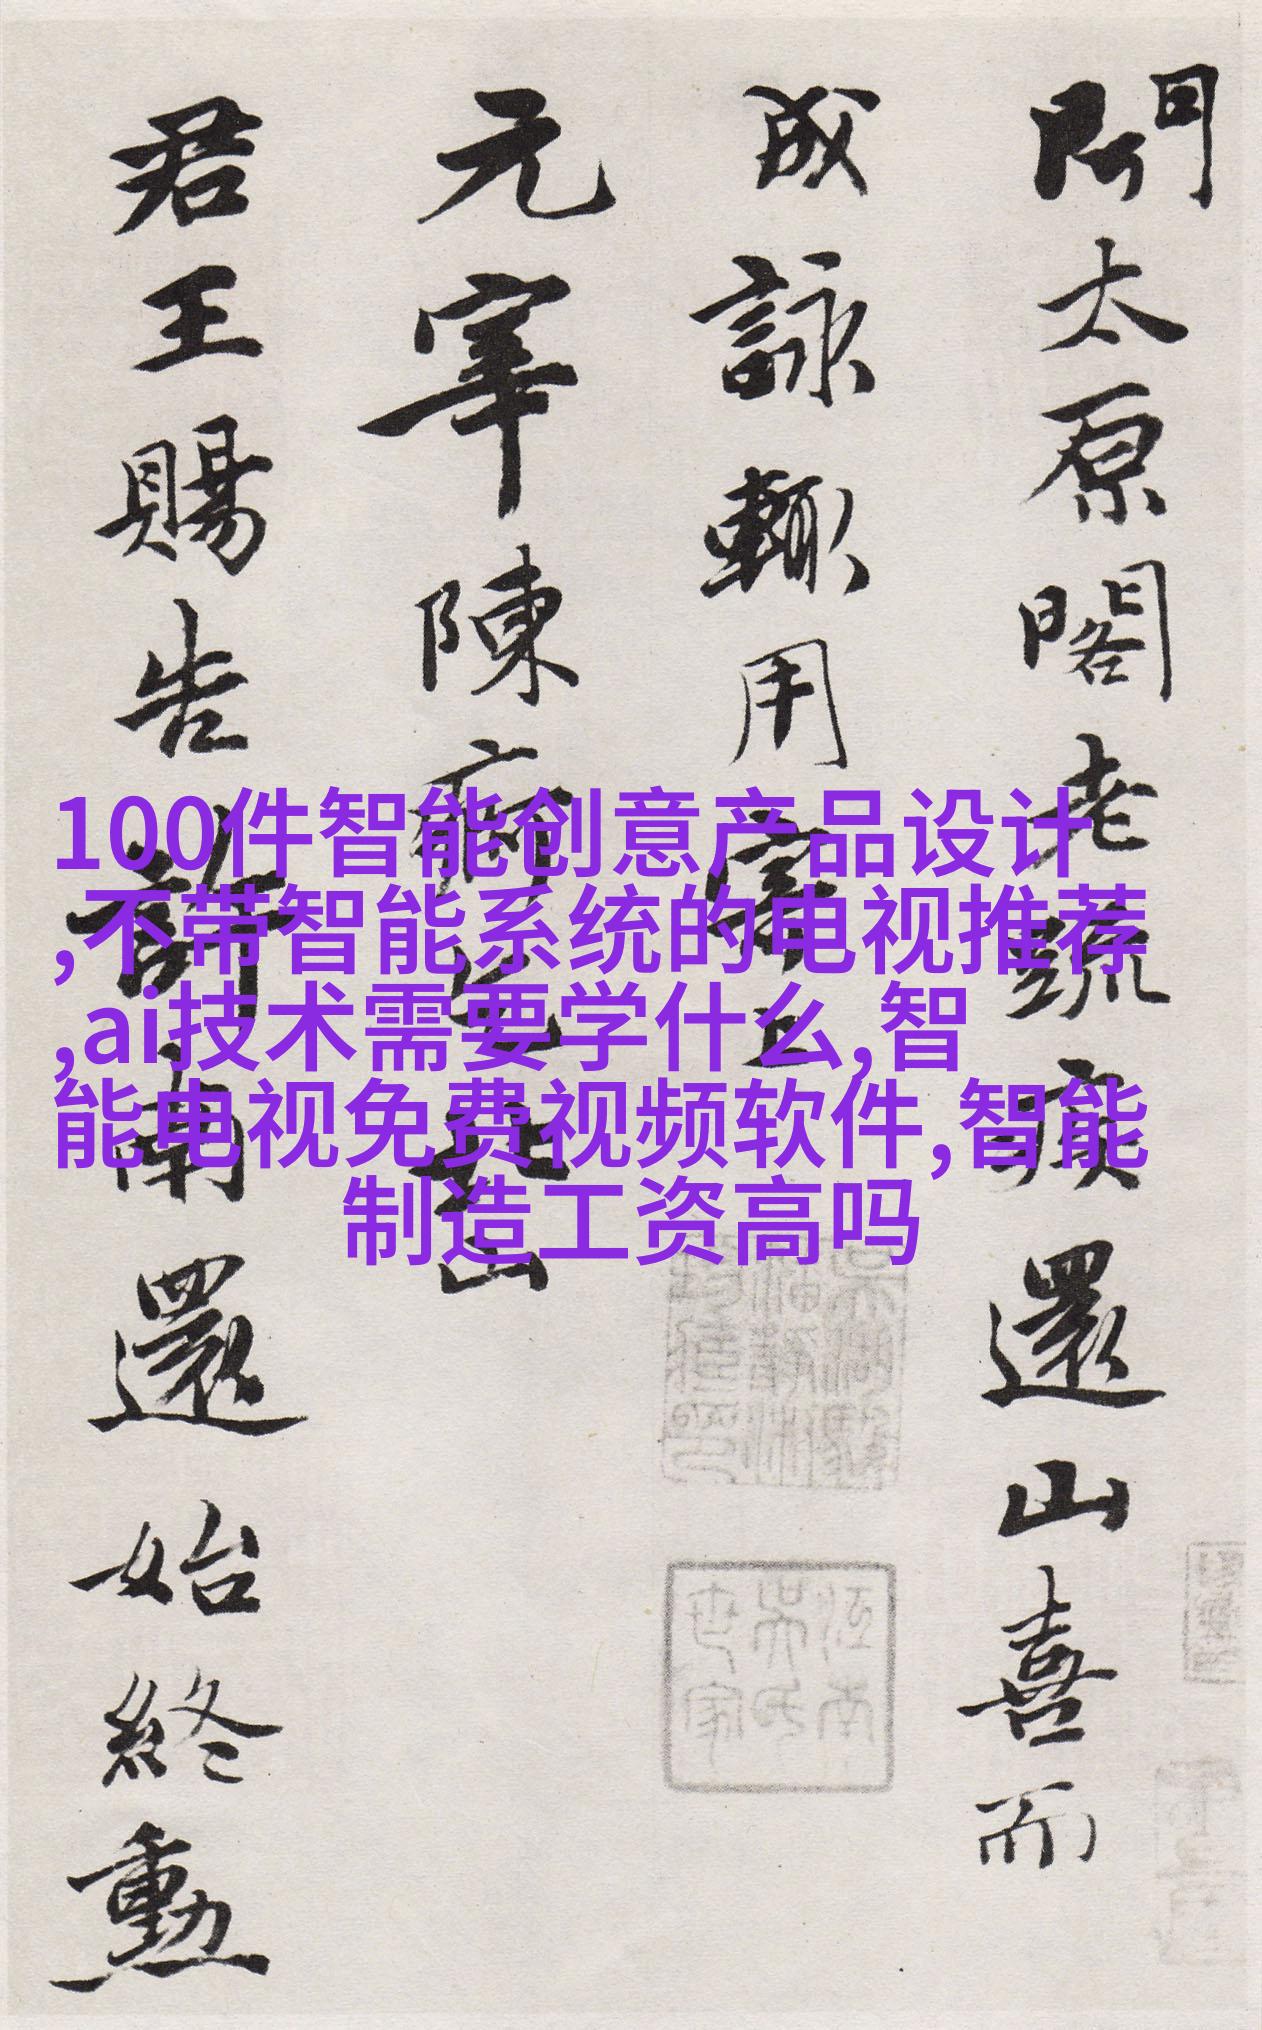 聞太原閤老疏疾還山喜而
成詠輒用寄上
元宰陳痾乞山
君王賜告許南還始終勳
100件智能创意产品设计
,不带智能系统的电视推荐
,ai技术需要学什么,智
能电视免费视频软件,智能
制造工资高吗
江南
吳氏
世家